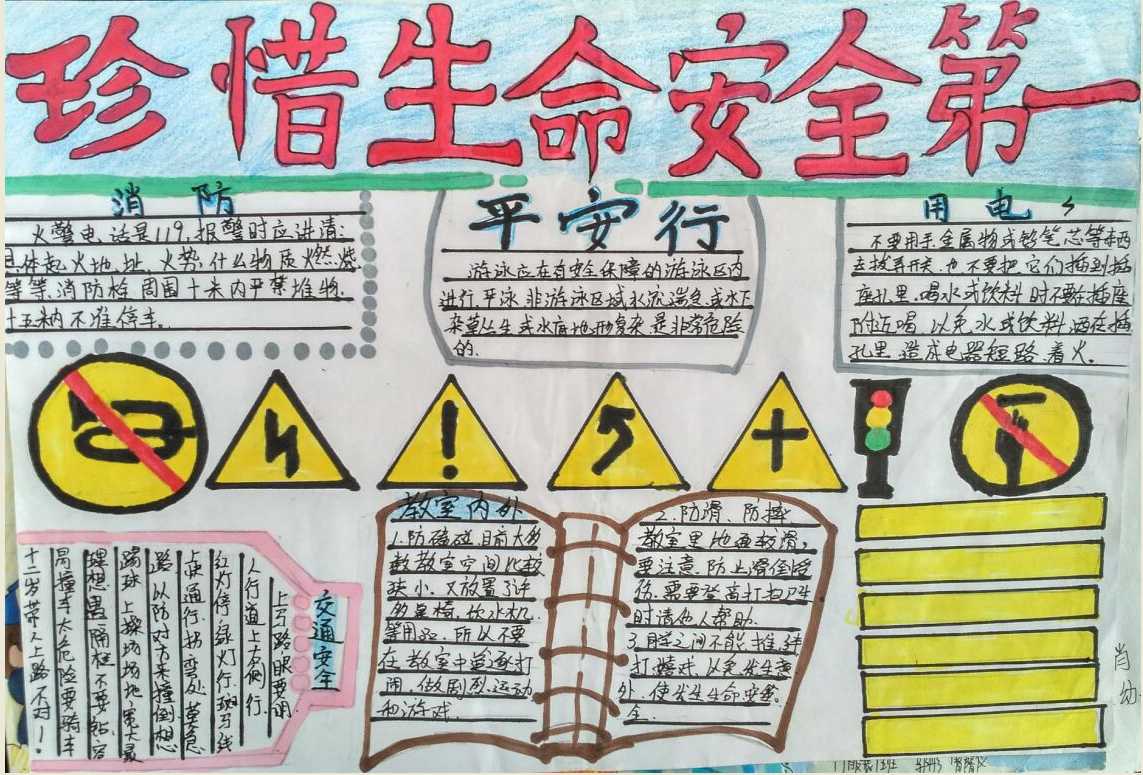 珍惜生命安全第一
消防
火警电话是119,报警时应讲清:
具体起火地址,火势,什么物质燃烧
等等.消防栓周围十米内严禁堆物,
十五米内不准停车。
平安行
游泳应在有安全保障的游泳区内
进行,平泳非游泳区域水流湍急,或水下
杂草丛生或水底地形复杂是非常危险
的.
用电
不要用手、金属物或铅笔芯等东西
去拨弄开关,也不要把它们插到插
座孔里.喝水或饮料时不要在插座
附近喝,以免水或饮料洒在插
孔里,造成电器短路,着火.
教室内外
1.防磕碰.目前大多
数教室空间比较
狭小,又放置了许
多桌椅、饮水机
等用品,所以不要
在教室中追逐打
闹,做剧烈运动
和游戏.
2.防滑、防摔
教室里地面较滑,
要注意防止滑倒受
伤,需要登高打扫卫生
时请他人帮助.
3.同之间不能推
打嬉戏,以免发生意
外,使发生生命安
全.
交通安全
上马路,眼要明,
人行道上右侧行.
红灯停,绿灯行,斑马线
上使通行.拐弯处,莫急
路以防对方来撞倒.想
踢球,上操场,场地宽大最
理想.遇隔栏,不要钻,容
易撞车大危险.要骑车
十二岁带人上路不对!